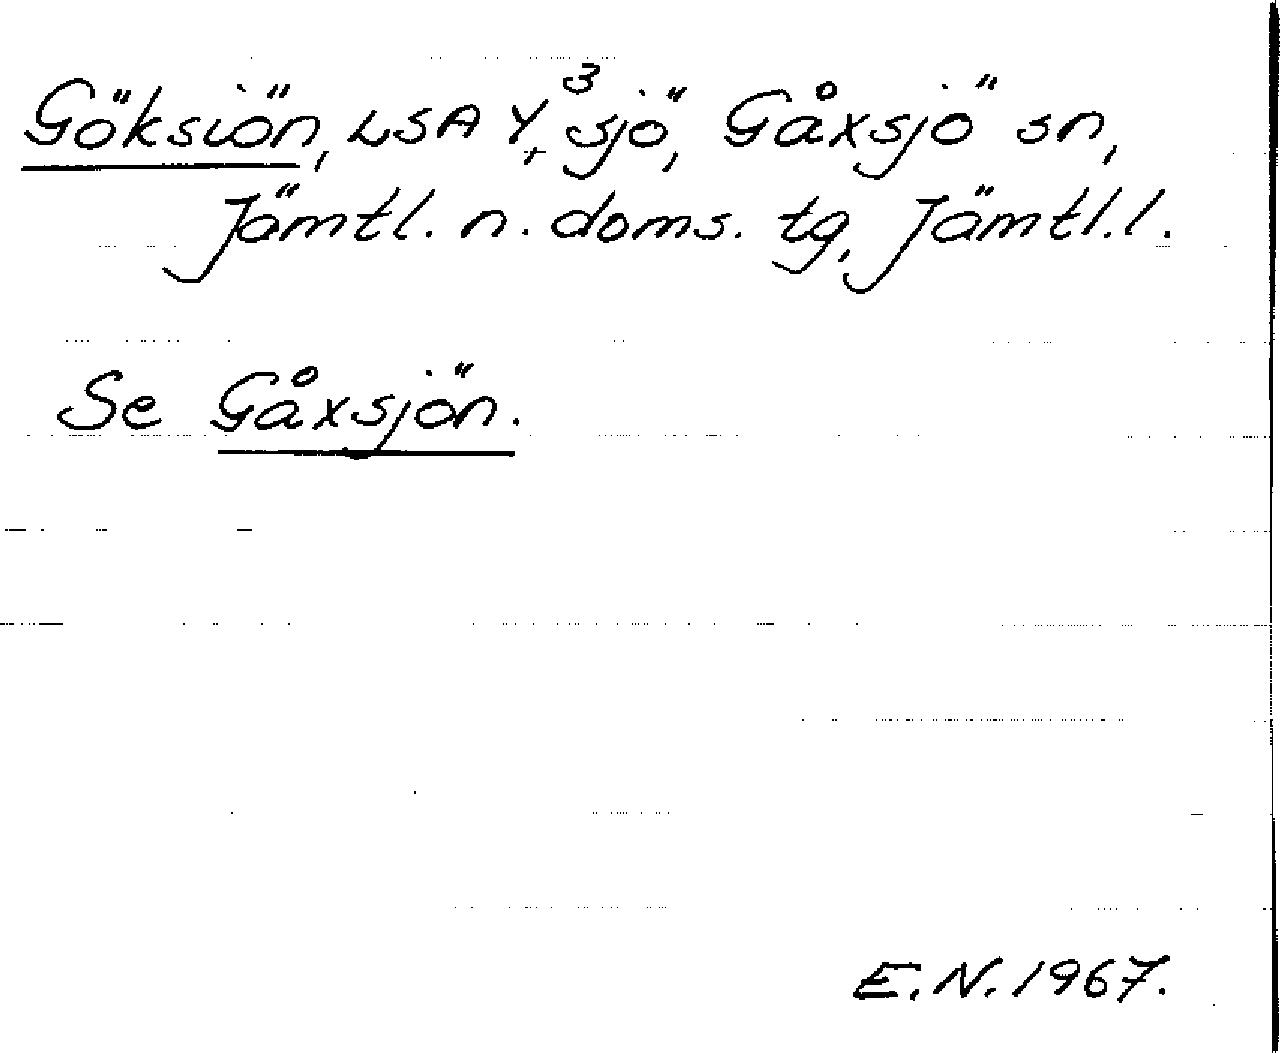 Göksiön, LSA Y 3, sjö, Gåxsjö sn,
Jämtl. n. doms. tg, Jämtl. l.
Se Gåxsjön.
E.N. 1967.